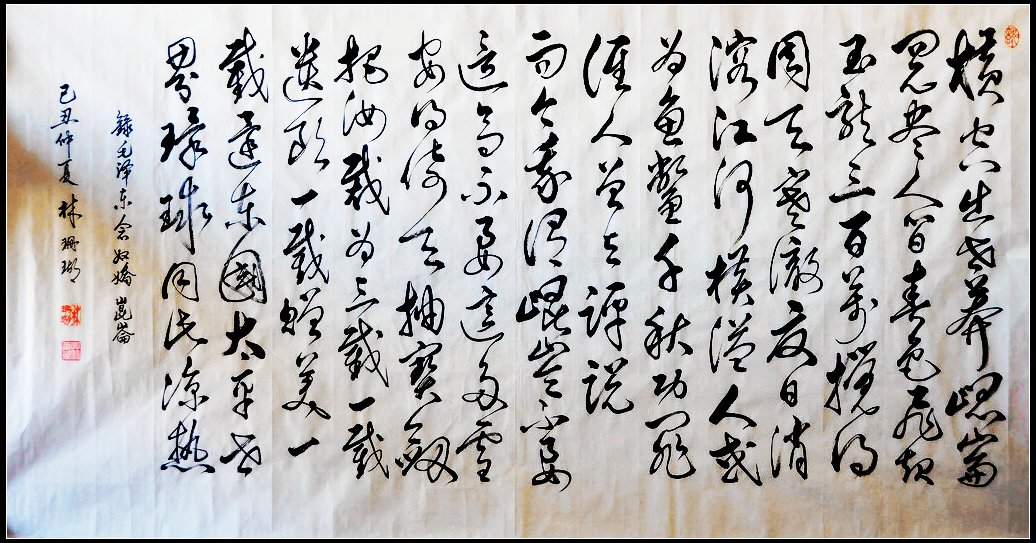 横空出世莽崐崙
阅尽人间春色飛起
玉龙三百万攪得
周天寒澈夏日消
溶江河横溢人或
为鱼鳖千秋功罪
谁人曾与評説
而今我谓崐崙不要
這高不要這多雪
安得倚天抽寶劍
把汝裁为三截一截
遗欧一截赠美一
截还东國太平世
界环球同此涼热
録毛泽东念奴嬌崑崙
己丑仲夏林珊瑚